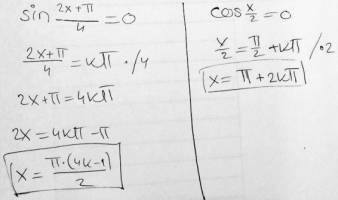 sin (2x+π)/4 = 0
(2x+π)/4 = kπ ·/4
2x+π = 4kπ
2x = 4kπ - π
x = π·(4k-1)/2
cos x/2 = 0
x/2 = π/2 + kπ /·2
x = π + 2kπ